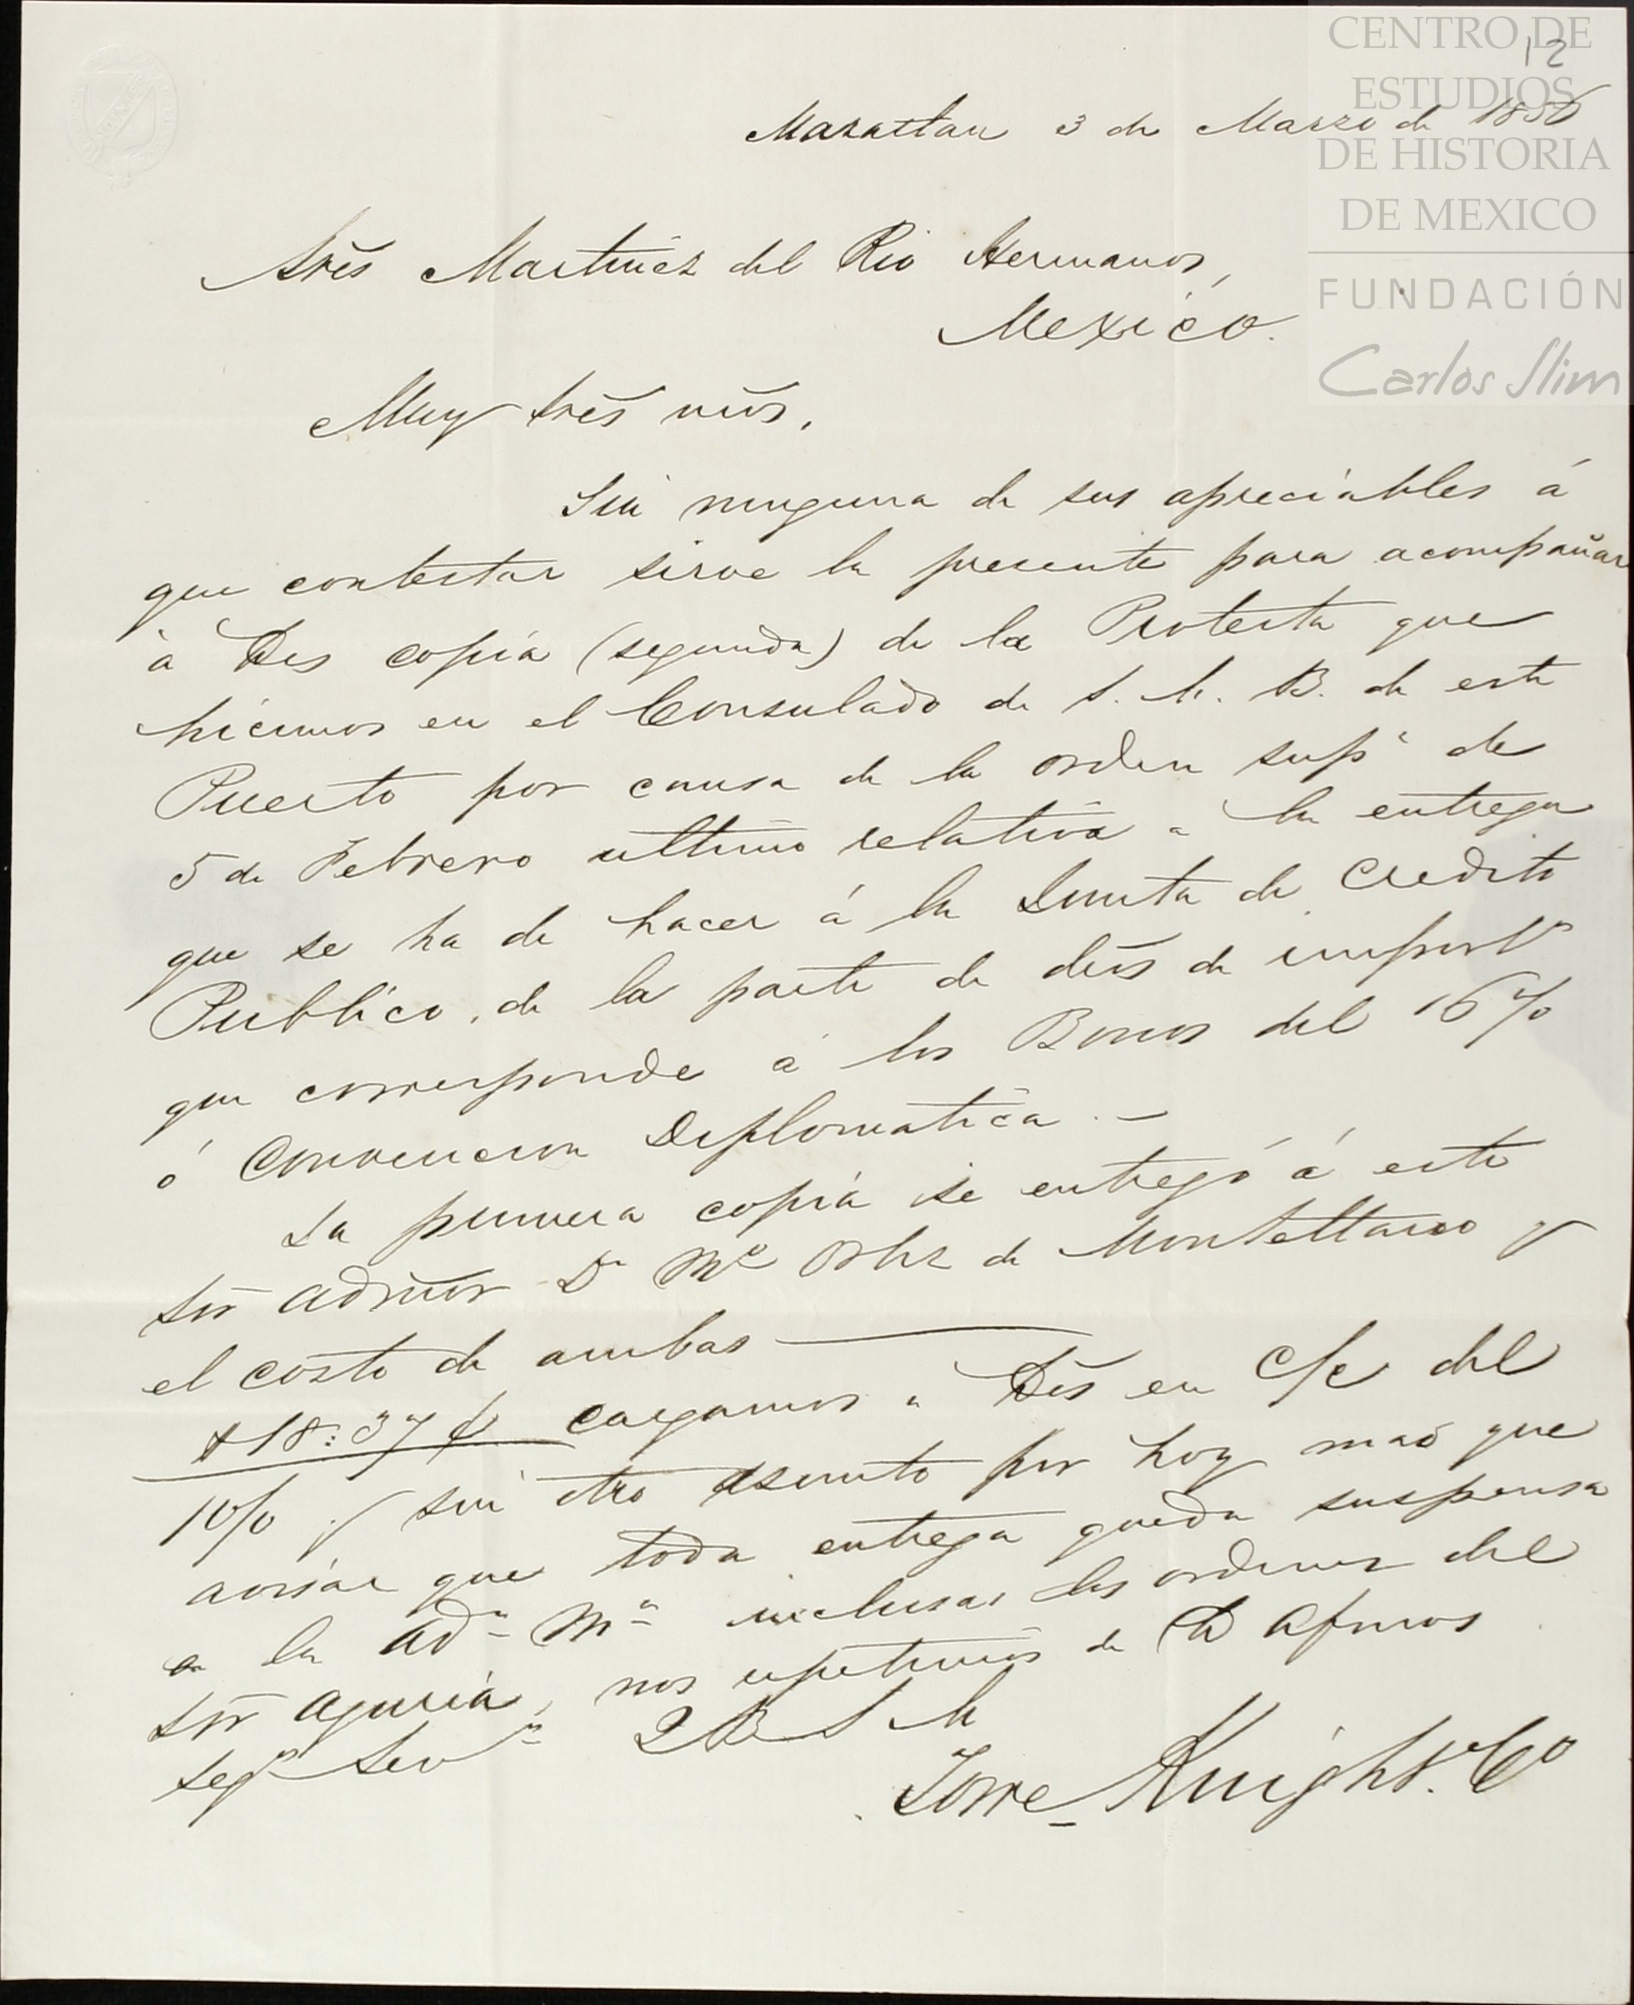 CENTRO DE
ESTUDIOS
DE HISTORIA
DE MEXICO
FUNDACIÓN
Carlos Slim
12
Mazatlan 3 de Marzo de 1850
Srēs Martinez del Rio Hermanos,
Mexico.
Muy Srēs nr̄os,
Sin ninguna de sus apreciables á
que contestar sirve la presente para acompañar
à Vdes copia (segunda) de la Protesta que
hicimos en el Consulado de S. M. B. de este
Puerto por causa de la orden supr de
5 de Febrero ultimo relativa a la entrega
que se ha de hacer á la Junta de Credito
Publico, de la parte de dr̄os de import.n
que corresponde á los Bonos del 16%
ó Convencion Diplomatica. —
La primera copia se entregó á este
Sor Admor Dn Ml Ortiz de Montellano y
el costo de ambas
$18:37 ¢ cargamos a Vdēs en c/c del
10/0 y sin otro asunto por hoy mas que
avisar que toda entrega queda suspensa
en la Adn Ma inclusas las ordenes del
Sor Aguria, nos repetimos de V Afmos
segs Servs Q B S M
Torre Knight. Co